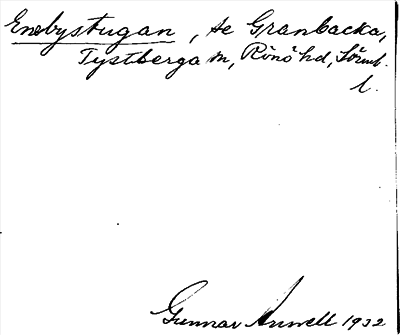 Enebystugan, se Granbacka,
Tystberga sn, Rönö hd, Sörml.
l.
Gunnar Annell 1932